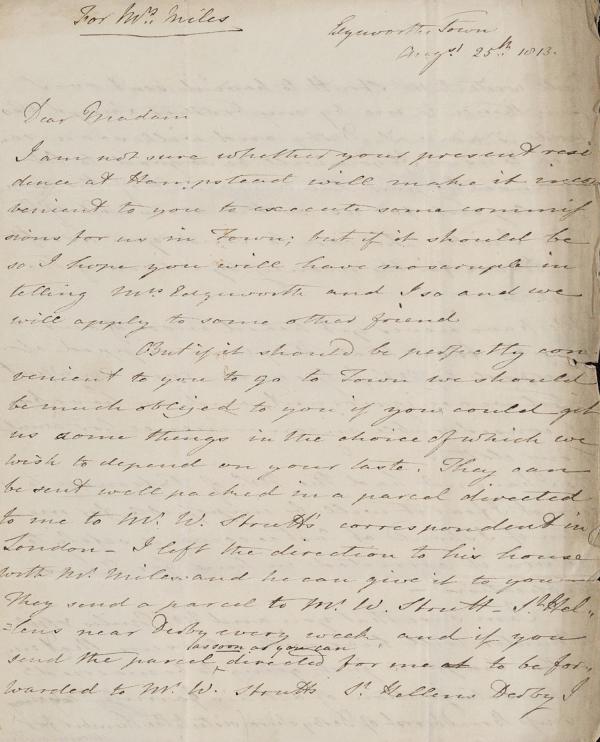 For Mrs. Miles
Edgeworths Town
Augst 25th 1813.
Dear Madam
I am not sure whether your present resi
dence at Hampstead will make it incon
venient to you to execute some commis
sions for us in Town; but if it should be
so I hope you will have no scruple in
telling Mrs Edgeworth and I so and we
will apply to some other friend
But if it should be perfectly con
venient to you to go to Town we should
be much obliged to you if you could get
us some things in the choice of which we
wish to depend on your taste. They can
be sent well packed in a parcel directed
to me to Mr. W. Strutt's correspondent in
London - I left the direction to his house
with Mr. Miles and he can give it to you -
They send a parcel to Mr. W. Strutt - St. Hel-
-lens near Derby every week and if you
as soon as you can
send the parcel directed for me to be for-
warded to Mr. W. Strutts St. Hellens Derby I